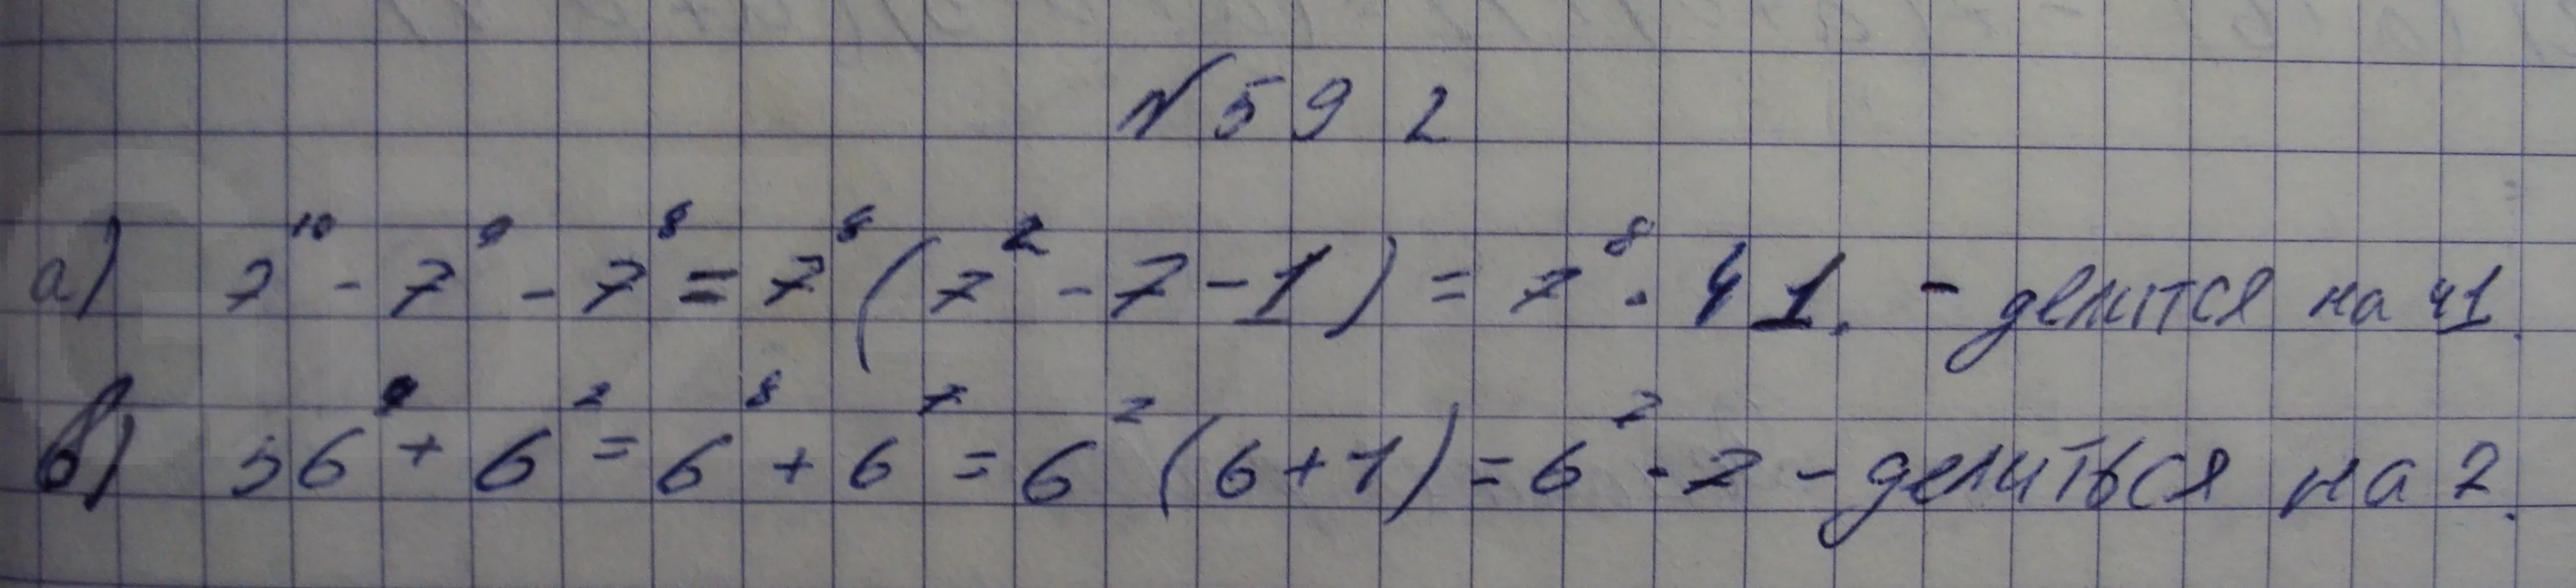 № 592
а) 7¹⁰ - 7⁹ - 7⁸ = 7⁸ (7² - 7 - 1) = 7⁸ · 41. - делится на 41.
в) 36⁴ + 6⁷ = 6⁸ + 6⁷ = 6⁷ (6 + 1) = 6⁷ · 7 - делиться на 7.